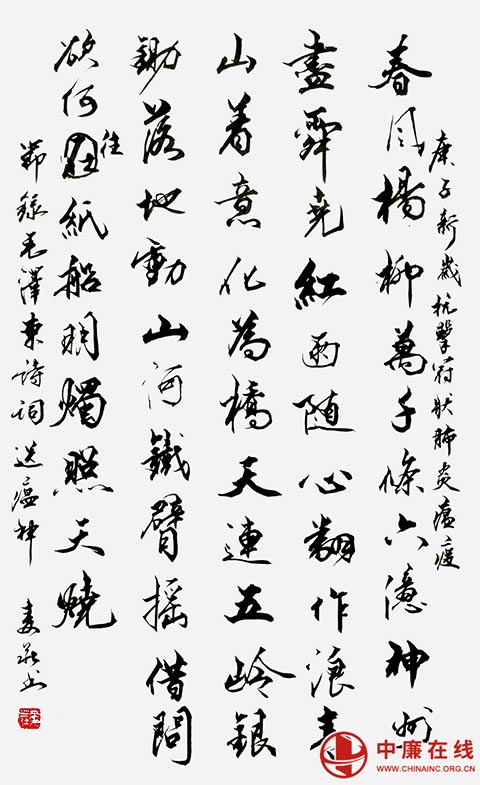 庚子新歲抗擊冠狀肺炎瘟疫
春風楊柳萬千條六億神州
盡舜堯紅雨随心翻作浪青
山着意化為橋天連五岭銀
鋤落地動山河鐵臂摇借問
欲何往紙船明燭照天燒
節錄毛澤東詩詞送瘟神
中廉在线
WWW.CHINAINC.ORG.CN